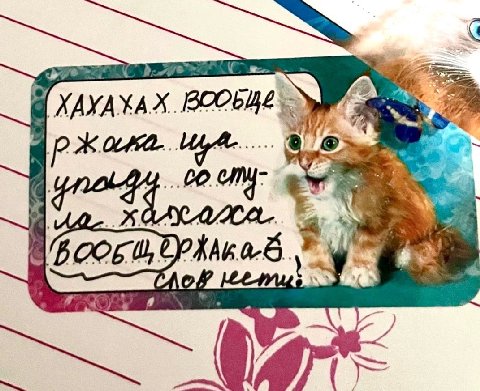 ХАХАХАХ ВООБЩЕ
ржака ща
упаду со сту-
ла хахаха
ВООБЩЕ РЖАКА Б
слов нету!